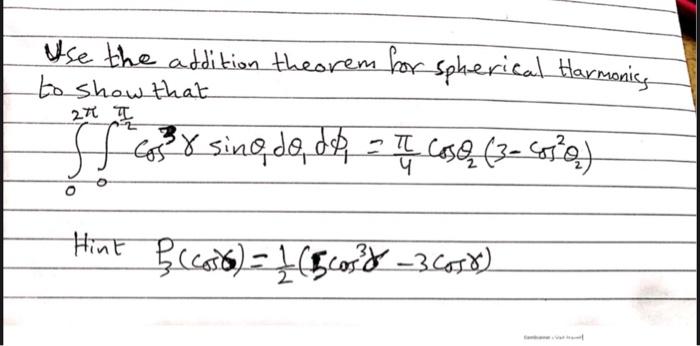 Use the addition theorem for spherical Harmonics
to show that
∫₀^2π ∫₀^π/2 cos³γ sinθ₁ dθ₁ dϕ₁ = π/4 cosθ₂ (3 - cos²θ₂)
Hint P₃(cosγ) = 1/2 (5cos³γ - 3cosγ)